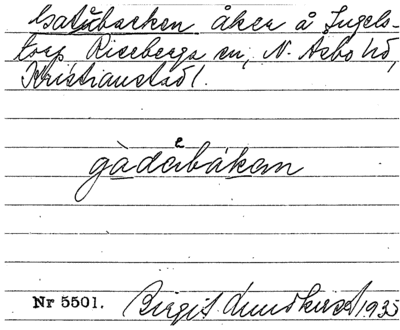 Gatubacken åker å Ingels-
torp Riseberga sn, N. Åsbo hd,
Kristianstads l.
gàdebákan
Nr 5501. Birgit Lundkvist 1935